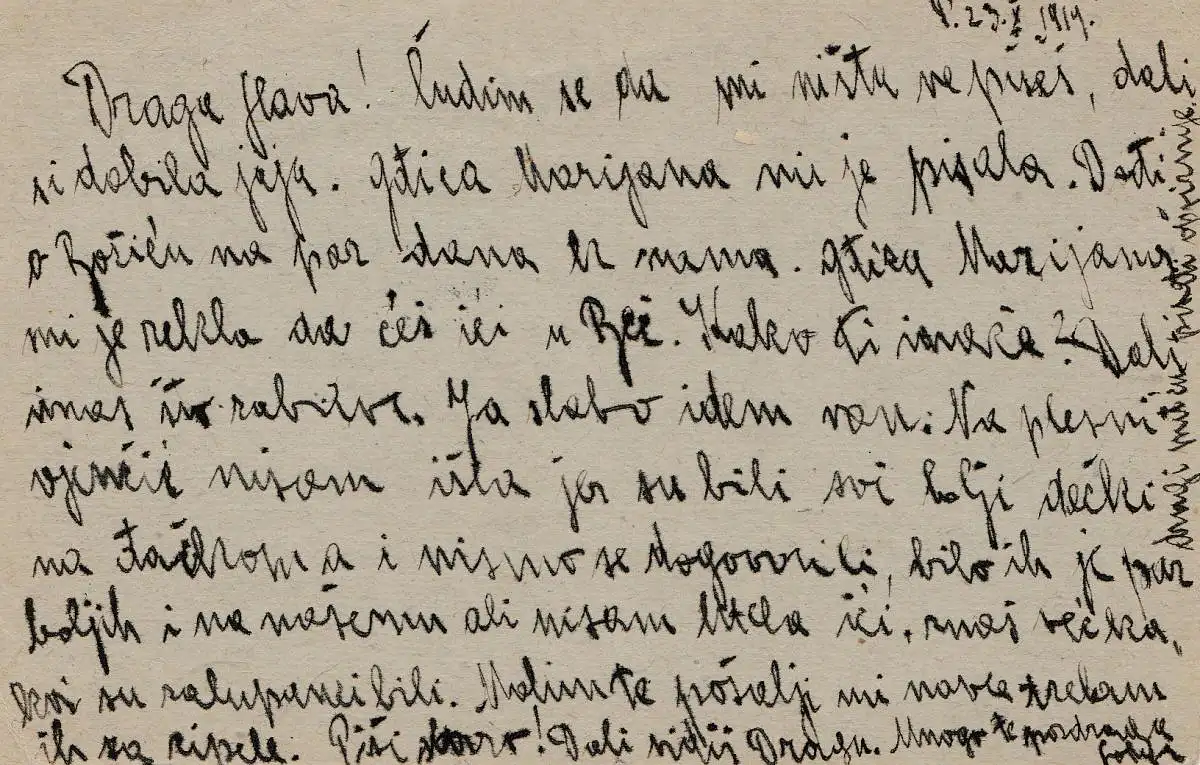 23. X 1919.
Draga Slava! Čudim se da mi ništa ne pišeš, dali
si dobila jaja. Gđica Marijana mi je pisala. Dođi
o Božiću na par dana k nama. Gđica Marijana
mi je rekla da ćeš ići u Beč. Kako ti inače? Dali
imaš zabave. Ja slabo idem van. Na plesni
vjenčić nisam išla jer su bili svi bolji dečki
na đačkom a i nismo se dogovorili, bilo ih je par
boljih i na našemu ali nisam htela ići, znaš većka,
koi su zalupanci bili. Molim te pošalji mi novce trebam
ih za cipele. Piši skoro! Dali vidiš Dragu. Mnogo te pozdravlja